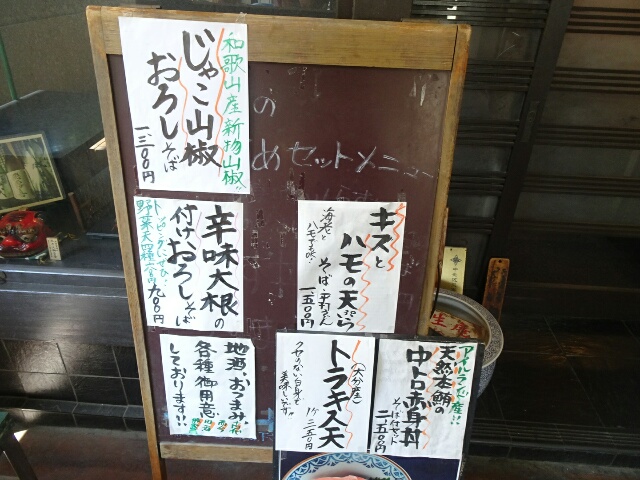 和歌山産新物山椒
じゃこ山椒
おろしそば
一、三〇〇円
の
めセットメニュー
辛味大根の
付け、おろしそば
トッピングにぜひ!
野菜天四種六〇円
九八〇円
キスと
ハモの天ぷら
海老と
そば・平打うどん
一、五〇〇円
地酒、おつまみ
各種御用意
しております!!
(大分産)
トラキス天
クセのない白身で
美味しいです!!
1ケ 二五〇円
アイルランド産!!
天然本鮪の
中トロ赤身丼
そば付セット
二五〇〇円